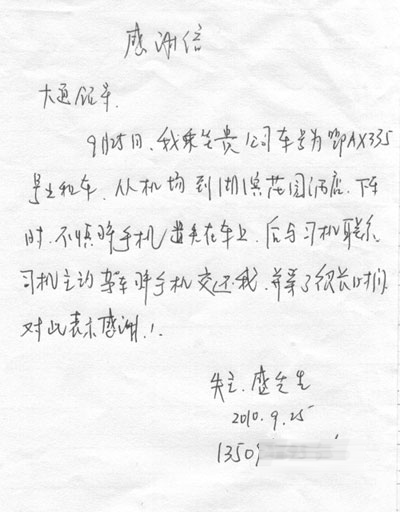 感谢信
大通的车.
9月25日.我乘坐贵公司车号为鄂AX335
号出租车.从机场到湖滨花园酒店.下车
时.不慎将手机遗失在车上.后与司机联系
司机主动驾车将手机交还我.并等了很长时间.
对此表示感谢.!.
失主.盛先生
2010.9.25
1350